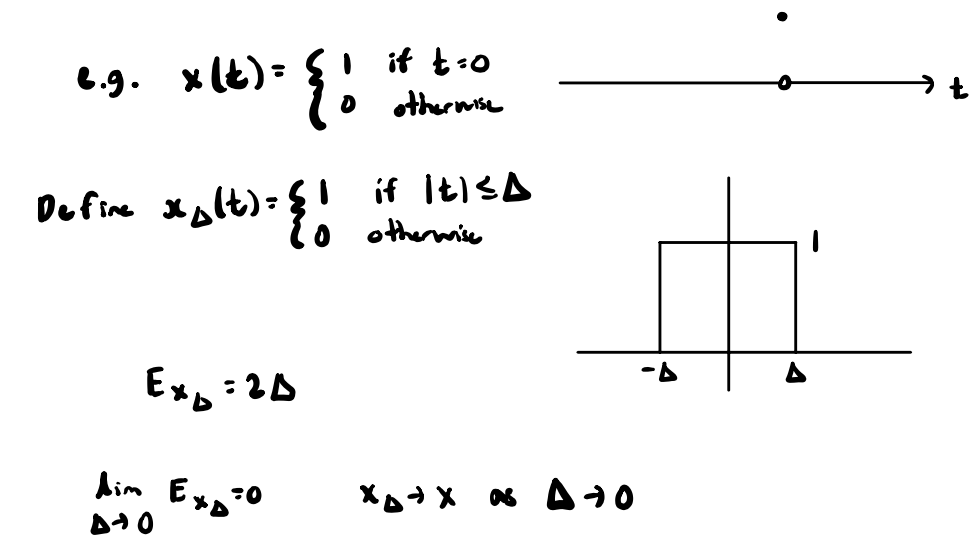 e.g. x(t) = { 1 if t=0
0 otherwise
t
0
Define x_Δ(t) = { 1 if |t| ≤ Δ
0 otherwise
1
-Δ Δ
E_{x_Δ} = 2Δ
lim_{Δ→0} E_{x_Δ} = 0 x_Δ → x as Δ → 0